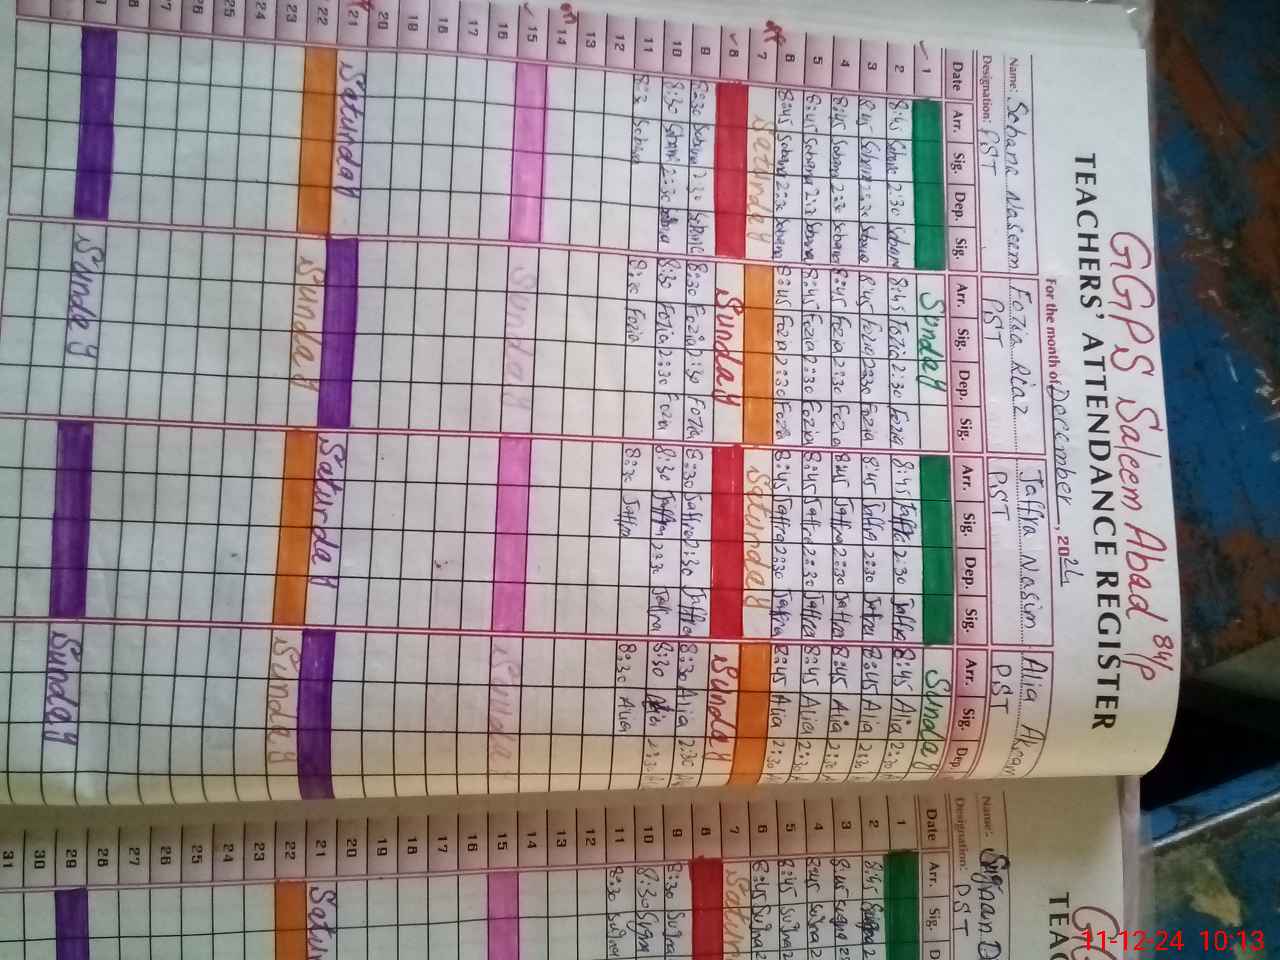 GGPS Saleem Abad 84p
TEACHERS' ATTENDANCE REGISTER
For the month of December, 2024
Name: Sobana Naseem Fozia Riaz Jaffra Nasim Alia Akram
Designation: PST PST PST PST
Date Arr. Sig. Dep. Sig. Arr. Sig. Dep. Sig. Arr. Sig. Dep. Sig. Arr. Sig. Dep.
1 Sunday Sunday
2 8:45 Sobana 2:30 Sobana 8:45 Fozia 2:30 Fozia 8:45 Jaffra 2:30 Jaffra 8:45 Alia 2:30
3 8:45 Sobana 2:30 Sobana 8:45 Fozia 2:30 Fozia 8:45 Jaffra 2:30 Jaffra 8:45 Alia 2:30
4 8:45 Sobana 2:30 Sobana 8:45 Fozia 2:30 Fozia 8:45 Jaffra 2:30 Jaffra 8:45 Alia 2:30
5 8:45 Sobana 2:30 Sobana 8:45 Fozia 2:30 Fozia 8:45 Jaffra 2:30 Jaffra 8:45 Alia 2:30
6 8:45 Sobana 2:30 Sobana 8:45 Fozia 2:30 Fozia 8:45 Jaffra 2:30 Jaffra 8:45 Alia 2:30
7 Saturday Saturday
8 Sunday Sunday
9 8:30 Sobana 2:30 Sobana 8:30 Fozia 2:30 Fozia 8:30 Jaffra 2:30 Jaffra 8:30 Alia 2:30
10 8:30 Sobana 2:30 Sobana 8:30 Fozia 2:30 Fozia 8:30 Jaffra 2:30 Jaffra 8:30 Alia 2:30
11 8:30 Sobana 8:30 Fozia 8:30 Jaffra 8:30 Alia
12
13
14
15 Sunday Sunday
16
17
18
19
20
21 Saturday Saturday
22 Sunday Sunday
23
24
25
26
27
28
Sunday Sunday
TEAC
Name:
Designation: PST
Date Arr. Sig.
1
2 8:45
3 8:45
4 8:45
5 8:45
6 8:45
7 Satur
8
9 8:30
10 8:30
11 8:30
12
13
14
15
16
17
18
19
20
21 Satur
22
23
24
25
26
27
28
29
30
31
11-12-24 10:13